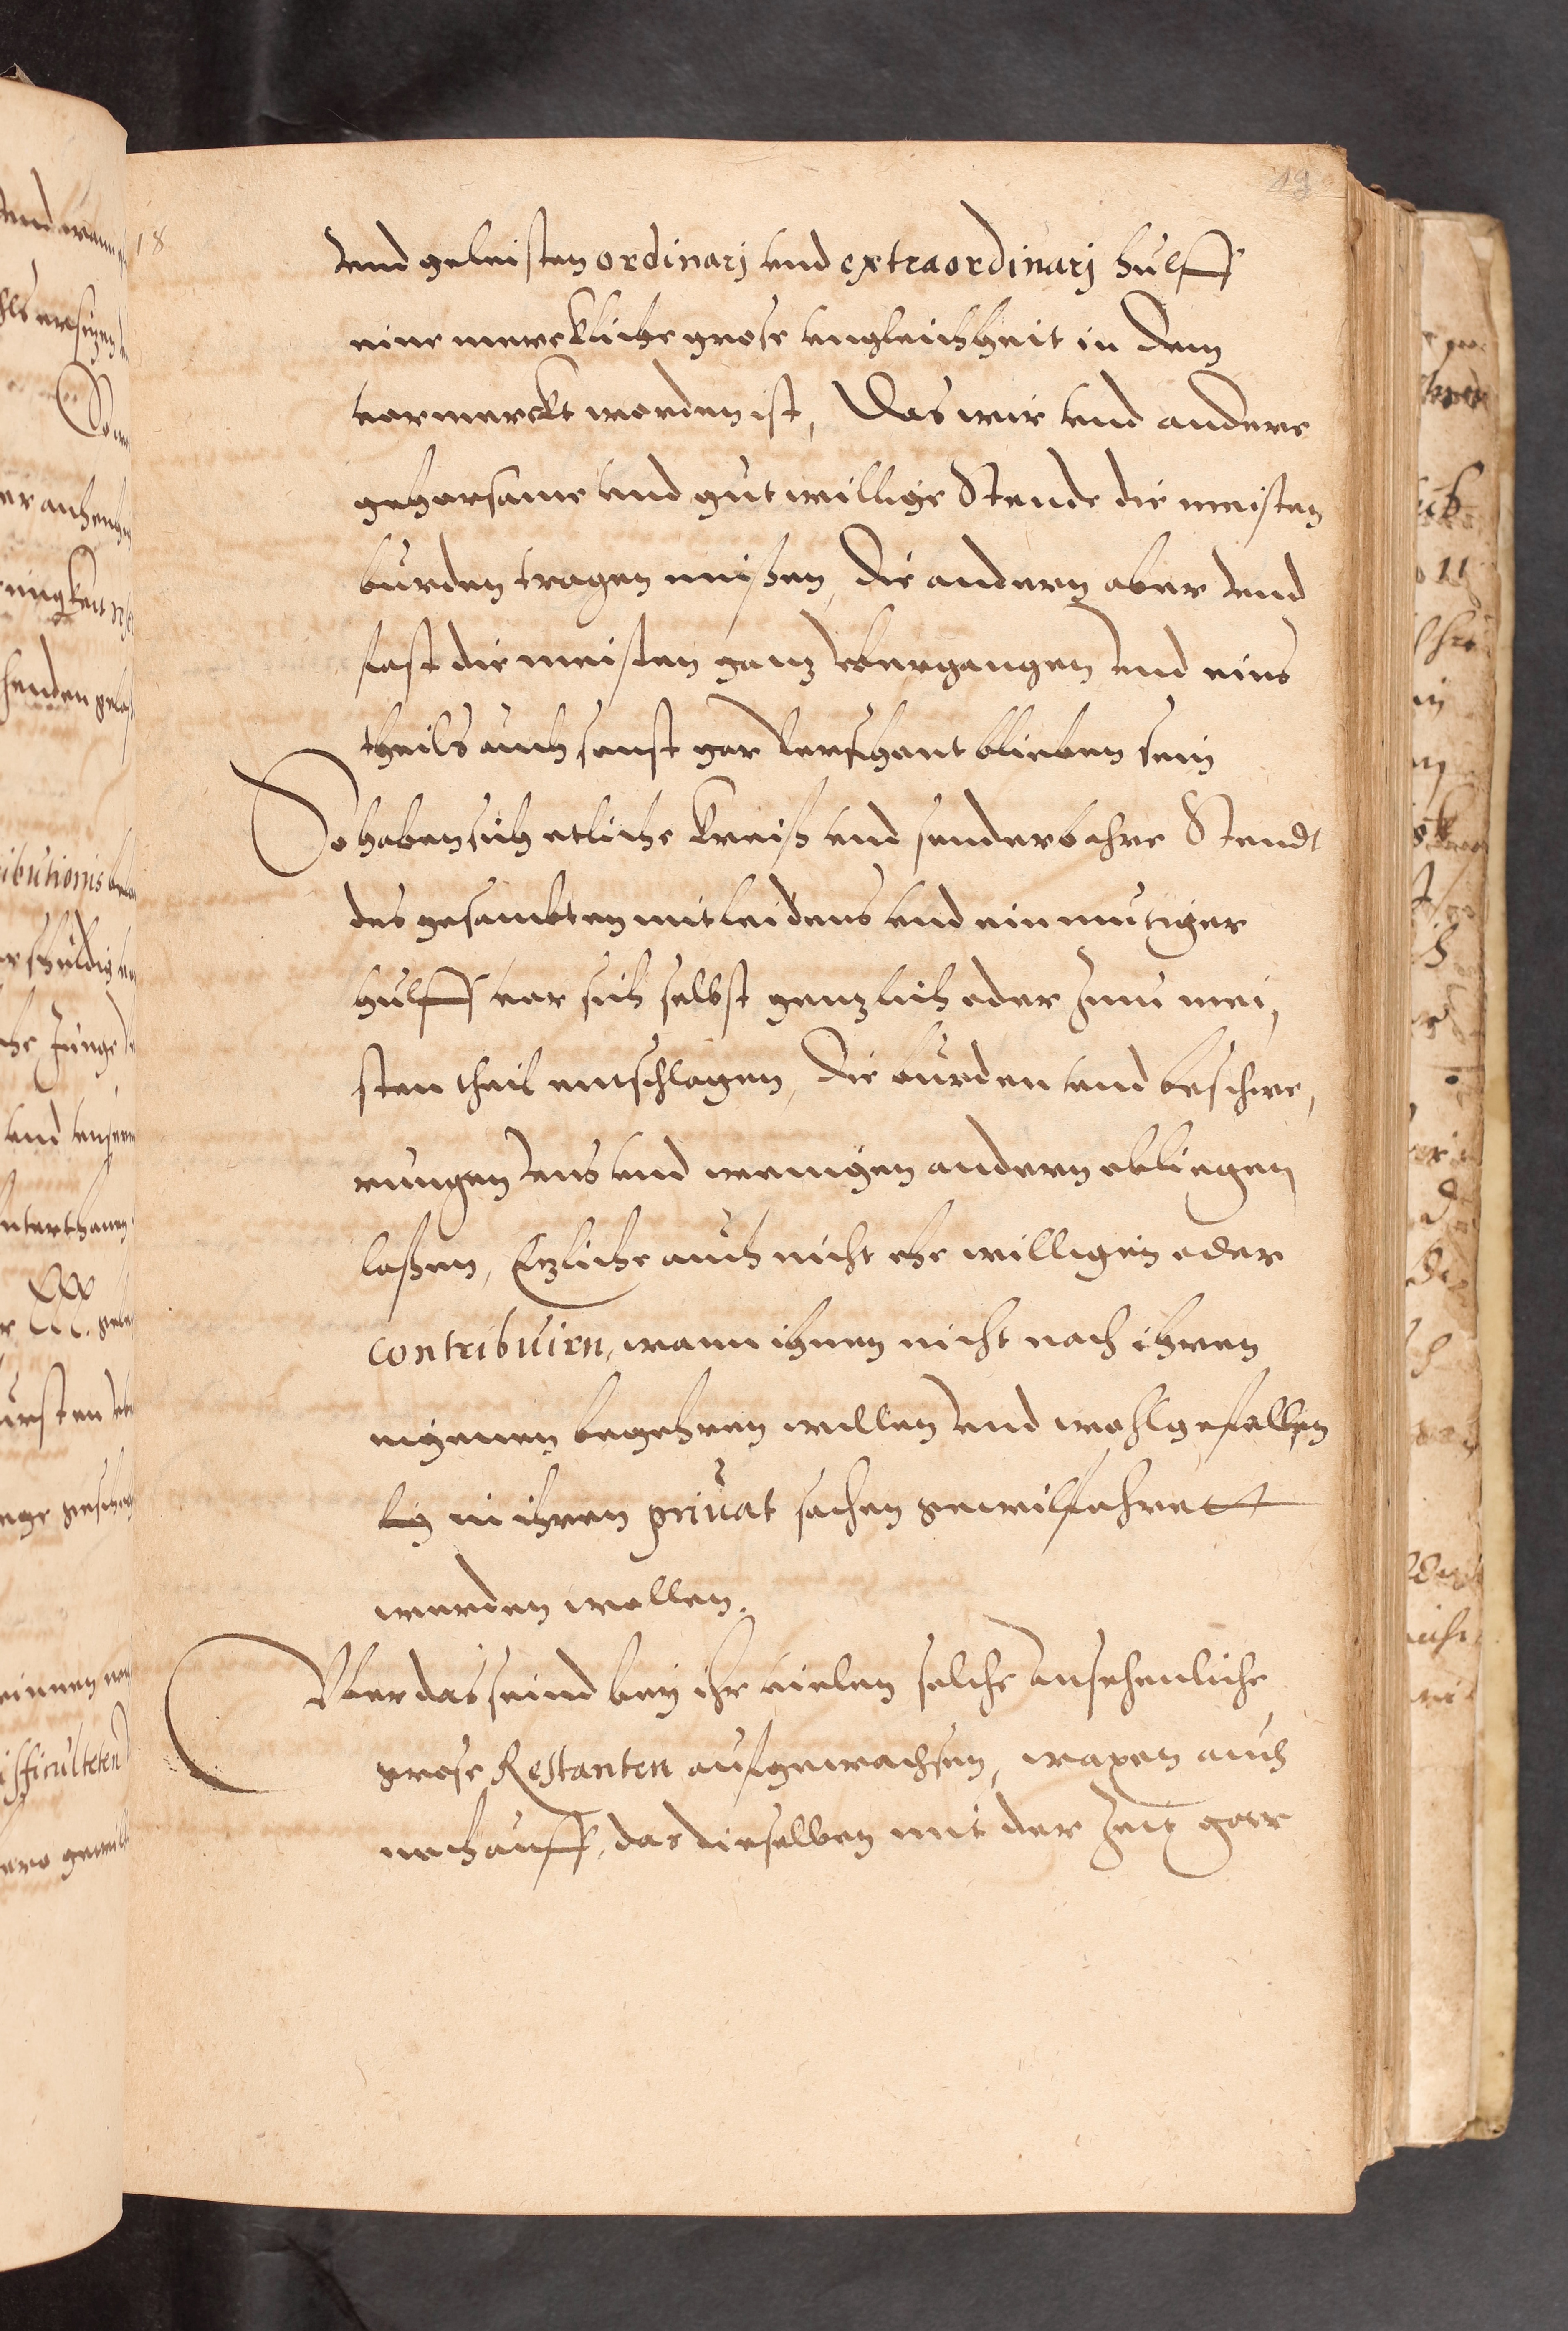 19
18
vnd geleisten ordinarj vnd extraordinarj hulff
eine merckliche grose vngleichheit in dem
vermerckt worden ist, Das wir vnd andere
gehorsame vnd gutwillige Stende die meisten
burden tragen mußen, die andern aber vnd
fast die meisten ganz vbergangen vnd eins
theils auch sonst gar verschont blieben sein
So haben sich etliche Kreiß vnd sonderbahre Stendt
des gesambten mitleidens vnd einmutiger
hulff vor sich selbst genzlich oder zum mei,
sten theil entschlagen, die burden vnd beschwe,
rungen vns vnd wenigen andern obliegen
laßen, Etzliche auch nicht ehe willigen oder
contribuirn, wann ihnen nicht nach ihren
eigenen begehren willen vnd wohlgefallen
in ihren priuat sachen gewilfahret
werden wollen.
Vber das seind bey ihr vielen solche ansehenliche
grose Restanten aufgewachsen, waxen auch
noch auff, das dieselben mit der Zeit gar